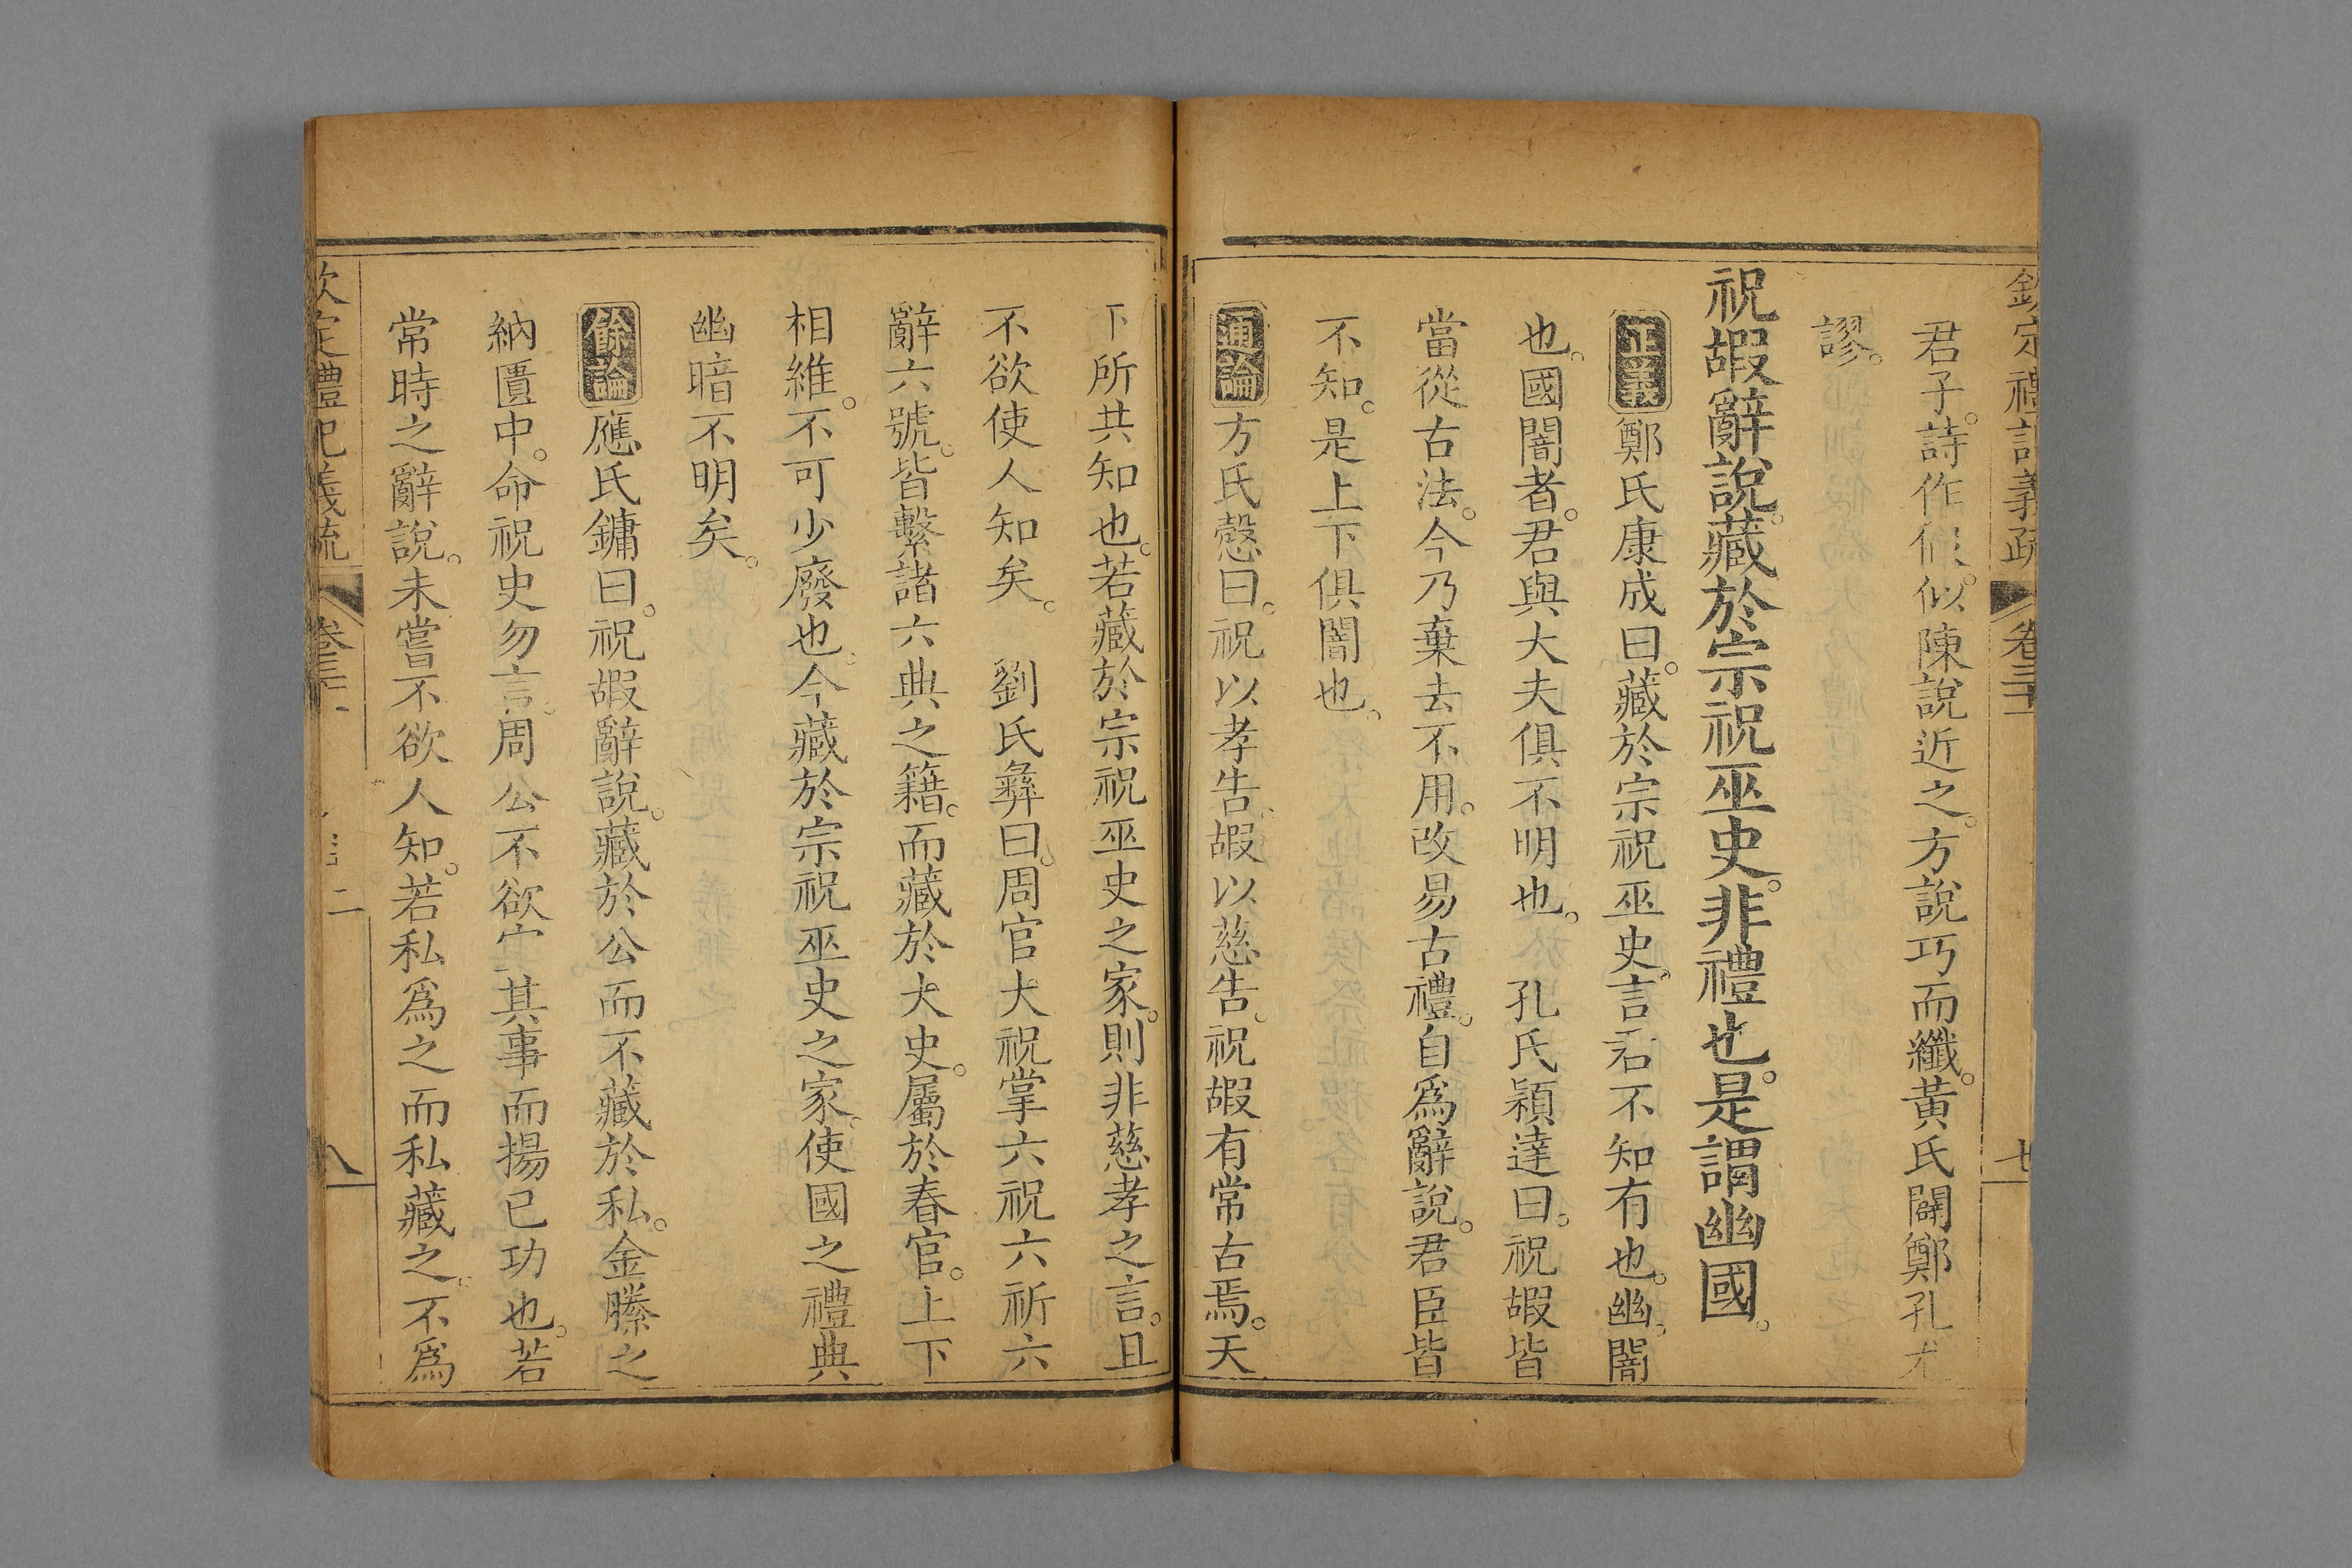 欽定禮記義疏 卷三十 七
君子。詩作假。似陳說近之。方說巧而纖。黃氏闢鄭孔尤
謬。
祝嘏辭說。藏於宗祝巫史。非禮也。是謂幽國。
正義 鄭氏康成曰。藏於宗祝巫史。言君不知有也。幽。闇
也。國闇者。君與大夫俱不明也。 孔氏穎達曰。祝嘏皆
當從古法。今乃棄去不用。改易古禮。自爲辭說。君臣皆
不知。是上下俱闇也。
通論 方氏慤曰。祝以孝告。嘏以慈告。祝嘏有常古焉。天
下所共知也。若藏於宗祝巫史之家。則非慈孝之言。且
不欲使人知矣。 劉氏彝曰。周官大祝掌六祝六祈六
辭六號。皆繫諸六典之籍。而藏於大史。屬於春官。上下
相維。不可少廢也。今藏於宗祝巫史之家。使國之禮典
幽暗不明矣。
餘論 應氏鏞曰。祝嘏辭說。藏於公而不藏於私。金縢之
納匱中。命祝史勿言。周公不欲宣其事而揚已功也。若
常時之辭說。未嘗不欲人知。若私爲之而私藏之。不爲
欽定禮記義疏 卷三十 二 八